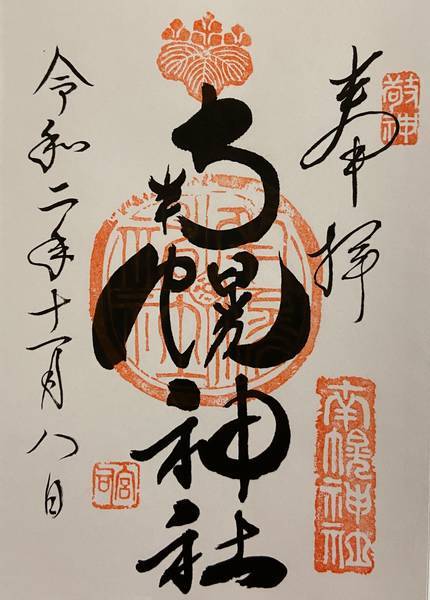 敬神
奉拝
南幌神社
南幌神社
令和二年十一月八日
宮司